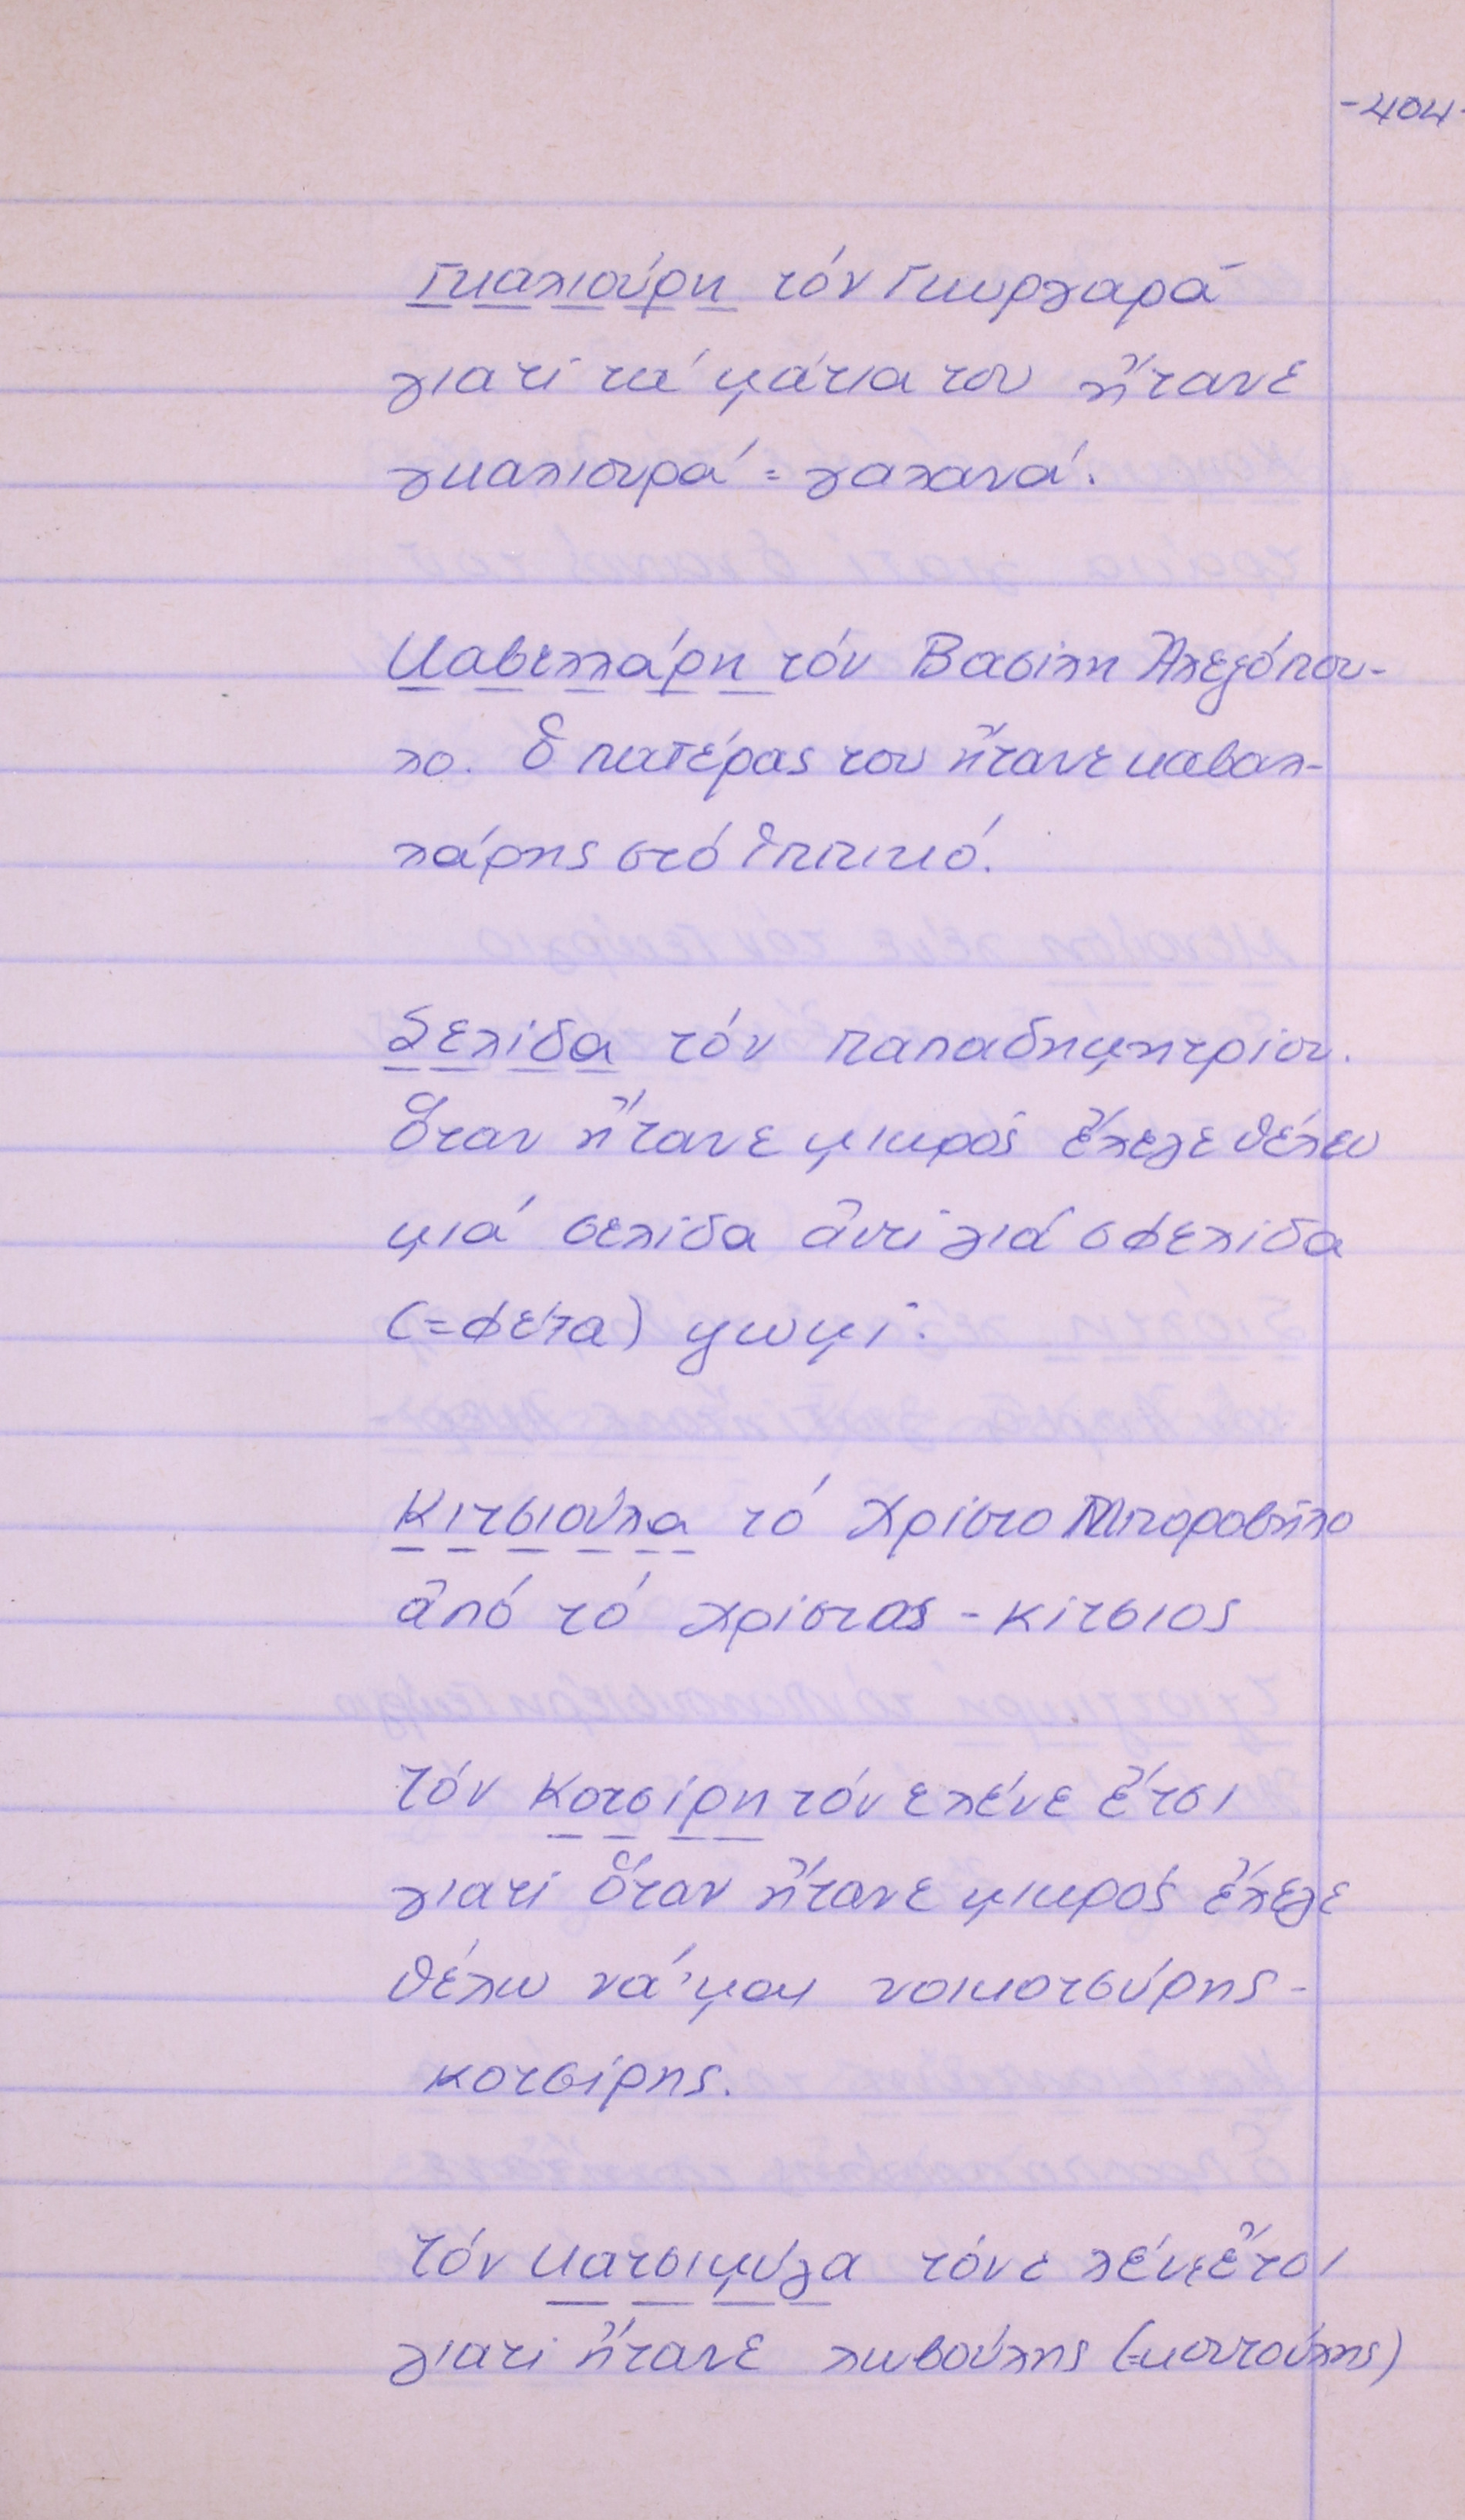 -404-
Γκαλιούρη τόν Γκυργαρά
γιατί τά μάτια του ἤτανε
γκαλιουρά = γαλανά.
Καβελλάρη τόν Βασίλη Ἀλεξόπου-
λο. Ὁ πατέρας του ἤτανε καβαλ-
λάρης στό ἱππικό.
Σελίδα τόν Παπαδημητρίου.
Ὅταν ἤτανε μικρός ἔλεγε θέλω
μιά σελίδα ἀντί γιά σφελίδα
(=φέτα) ψωμί.
Κιτσιούλα τό Χρίστο
ἀπό τό Χρίστος - Κίτσιος
Τόν Κοτσίρη τόν ελένε ἔτσι
γιατί ὅταν ἤτανε μικρός ἔλεγε
θέλω νά 'μαι νοικοτσύρης -
κοτσίρης.
Τόν Κατσιμύγα τόνε λένε ἔτσι
γιατί ἤτανε λωβούλης (=κουτούλης)